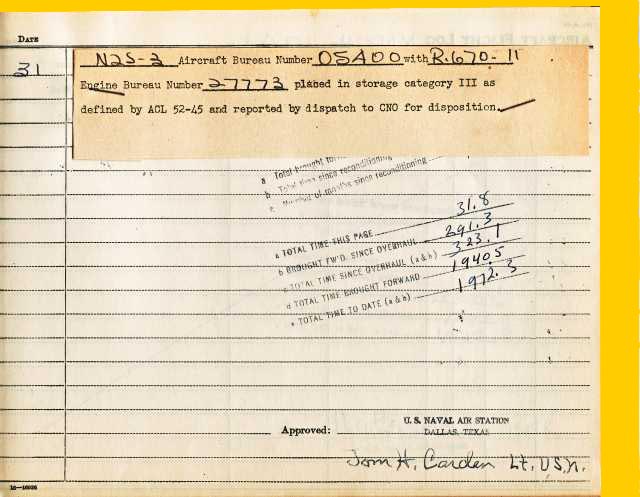 DATE
31
N2S-3 Aircraft Bureau Number 05400 with R-670-11
Engine Bureau Number 27773 placed in storage category III as
defined by ACL 52-45 and reported by dispatch to CNO for disposition.
a Total brought for
b Total time since reconditioning
c Number of months since reconditioning
a TOTAL TIME THIS PAGE 31.8
b BROUGHT FW'D. SINCE OVERHAUL 291.3
c TOTAL TIME SINCE OVERHAUL (a & b) 323.1
d TOTAL TIME BROUGHT FORWARD 1940.5
e TOTAL TIME TO DATE (a & b) 1972.3
Approved:
U. S. NAVAL AIR STATION
DALLAS, TEXAS
Tom H. Carden Lt. USN.